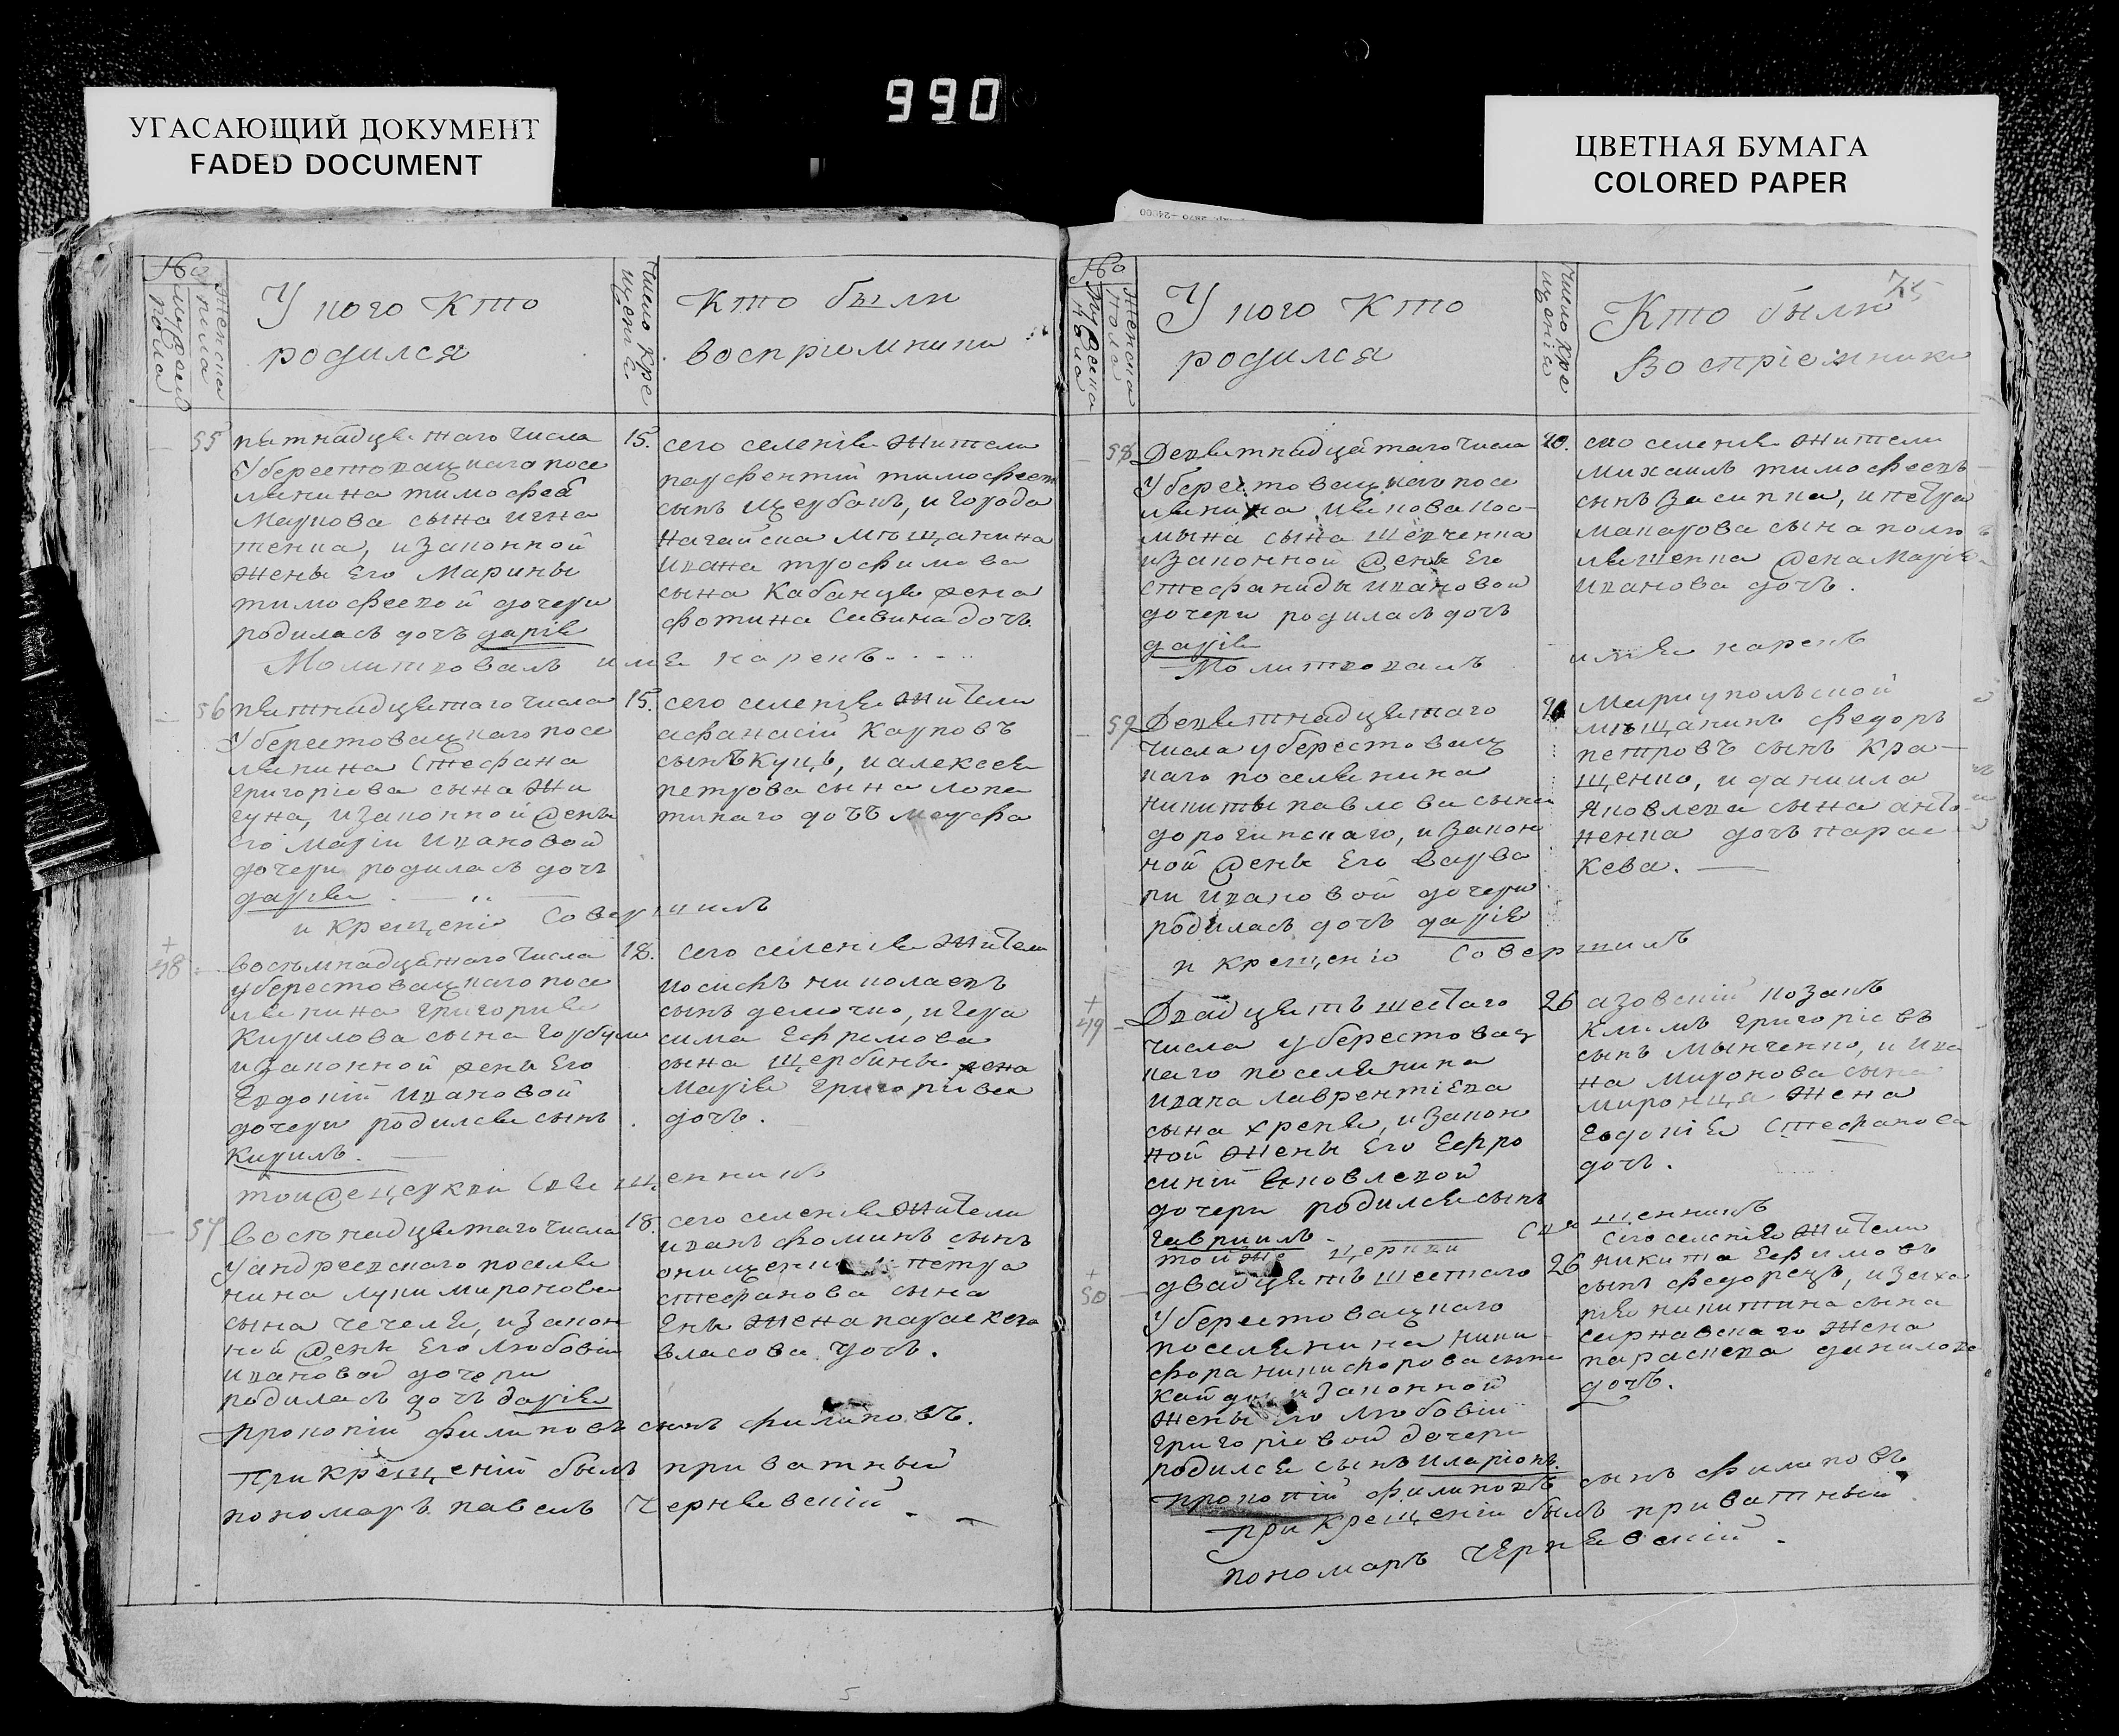 990
УГАСАЮЩИЙ ДОКУМЕНТ
FADED DOCUMENT
ЦВЕТНАЯ БУМАГА
COLORED PAPER
У кого Кто
родился
Число кре
щенія
Кто были
восприемники
55 пятнадцятаго числа
Убересто​вацкаго посе
лянина тимофея
Маркова сына игна
тенка, изаконной
жены Его Марины
тимофеевой дочери
родилась дочъ дарія
15. сего селенія жители
парфентій тимофеевъ
сынъ щербакъ, и города
Нагайска мѣщанина
ивана трофимова
сына Кабанця жена
фотина Савина дочъ
Молитвовалъ имя нарекъ
56 пятнадцятаго числа
Уберестовацкаго посе
лянина Стефана
григоріева сына Жи
гуна, изаконной жены
его Маріи ивановой
дочери родилась дочъ
дарія
15. сего селенія жители
афанасій Карповъ
сынъ Куцъ, иалексея
петрова сына лопа
тинаго дочъ марфа
и крещеніе Совершилъ
48 восъмнадцятаго числа
уберестовацкаго посе
лянина григорія
Кирилова сына
изаконной жены Его
Евдокіи ивановой
дочери родился сынъ
Кирилъ.
18. сего селенія жители
иосифъ николаевъ
сынъ демочко, игера
сима Ефремова
сына щербины жена
Марія григоріева
дочъ.
тойже церкви Священникъ
57 Восънадцятаго числа
Уандреевского поселя
нина луки миронова
сына чечеля, изакон
ной жены Его любовіи
ивановой дочери
родилась дочъ дарія
18. сего селенія жители
иванъ фоминъ сынъ
онищенко петра
стефанова сына
жена параскева
власова дочъ.
прокопій филиповъ сынъ филиповъ.
При крещеніи былъ приватный
пономаръ павелъ Чернявскій
75
У кого Кто
родился
Число кре
щенія
Кто были
Воспріемники
58 Девятнадцятаго числа
Уберестовацкаго посе
лянина иякова кос-
мына сына шевченка
изаконной жены Его
стефаниды ивановой
дочери родиласъ дочъ
дарія
20. сего селенія жители
михаилъ тимофеевъ
сынъ засипка, ипетра
макарова сына поля
жена Марія
иванова дочъ.
Молитвовалъ имя нарекъ
59 Девятнадцятаго
числа уберестовац
каго поселянина
никиты павлова сына
дорогинскаго, изакон
ной жены Его варва
ры ивановой дочери
родилась дочъ дарія
Мариупольской
мѣщанинъ федоръ
петровъ сынъ Кра-
щенко, и даниила
Яковлева сына анто
ненка дочъ парас
кева.
и крещеніе Совершилъ
49 Двадцятъ шестаго
числа уберестовац
каго поселянина
ивана лаврентіева
сына хреня, изакон
ной жены Его Ефро
синіи Яковлевой
дочери родился сынъ
гавріилъ
26 азовскій козакъ
климъ григоріевъ
сынъ Мынченко, и ива
на миронова сына
миронця жена
Евдокія Стефанова
дочъ.
той же церкви Священникъ
50 двадцятъ шестаго
Уберестовацкаго
поселянина ники
фора никифорова сына
Кайды изаконной
жены его любовіи
григоріевой дочери
родился сынъ иларіонъ.
26 Сего селенія жители
никита Ефимовъ
сынъ федорецъ, изаха
рія никитина сына
жена
параскева данилова
дочъ.
прокопій филиповъ сынъ филиповъ
При крещеніи былъ приватный
пономаръ Чернявскій.